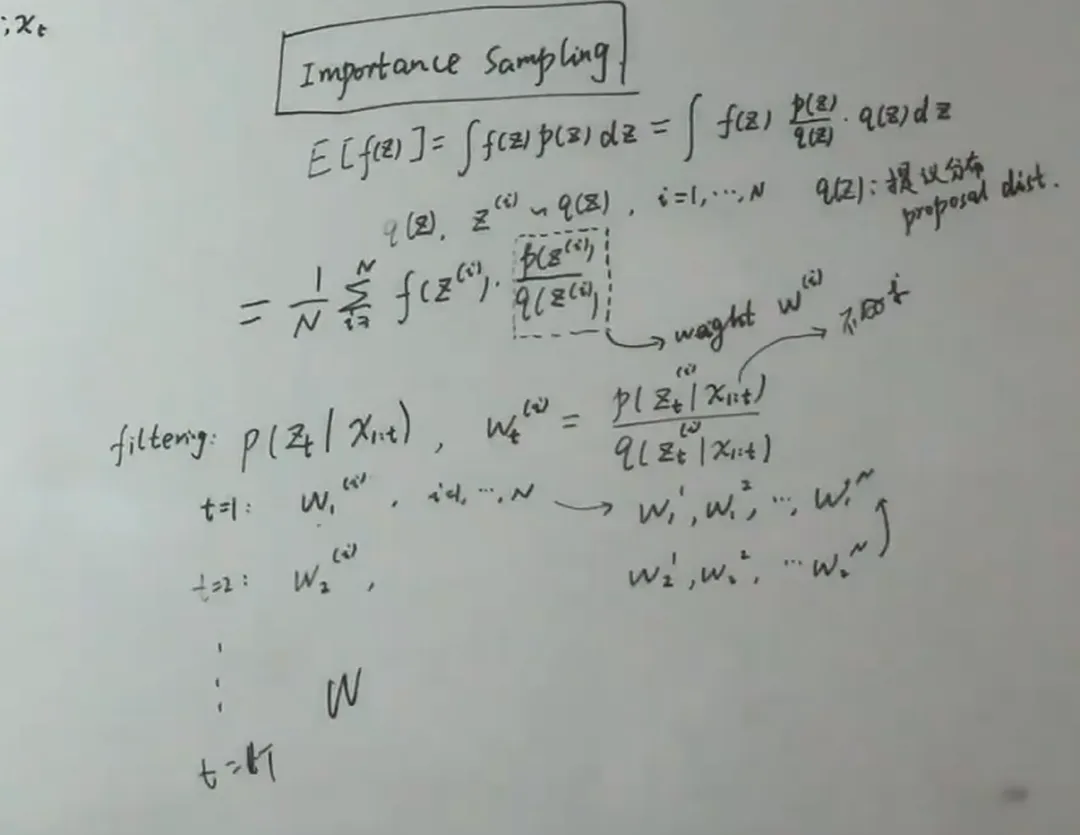 ; x_t
Importance Sampling
E[f(z)] = ∫ f(z) p(z) dz = ∫ f(z) p(z)/q(z) · q(z) dz
q(z), z^(i) ~ q(z), i=1,⋯,N q(z): 提议分布
proposal dist.
= 1/N ∑_{i=}^N f(z^(i)) · p(z^(i))/q(z^(i))
weight w^(i)
filtering: p(z_t | x_{1:t}), w_t^(i) = p(z_t^(i) | x_{1:t}) / q(z_t^(i) | x_{1:t})
t=1: w_1^(i), i=1,⋯,N → w_1^1, w_1^2, ⋯, w_1^N
t=2: w_2^(i), w_2^1, w_2^2, ⋯ w_2^N
⋮ W
t=T